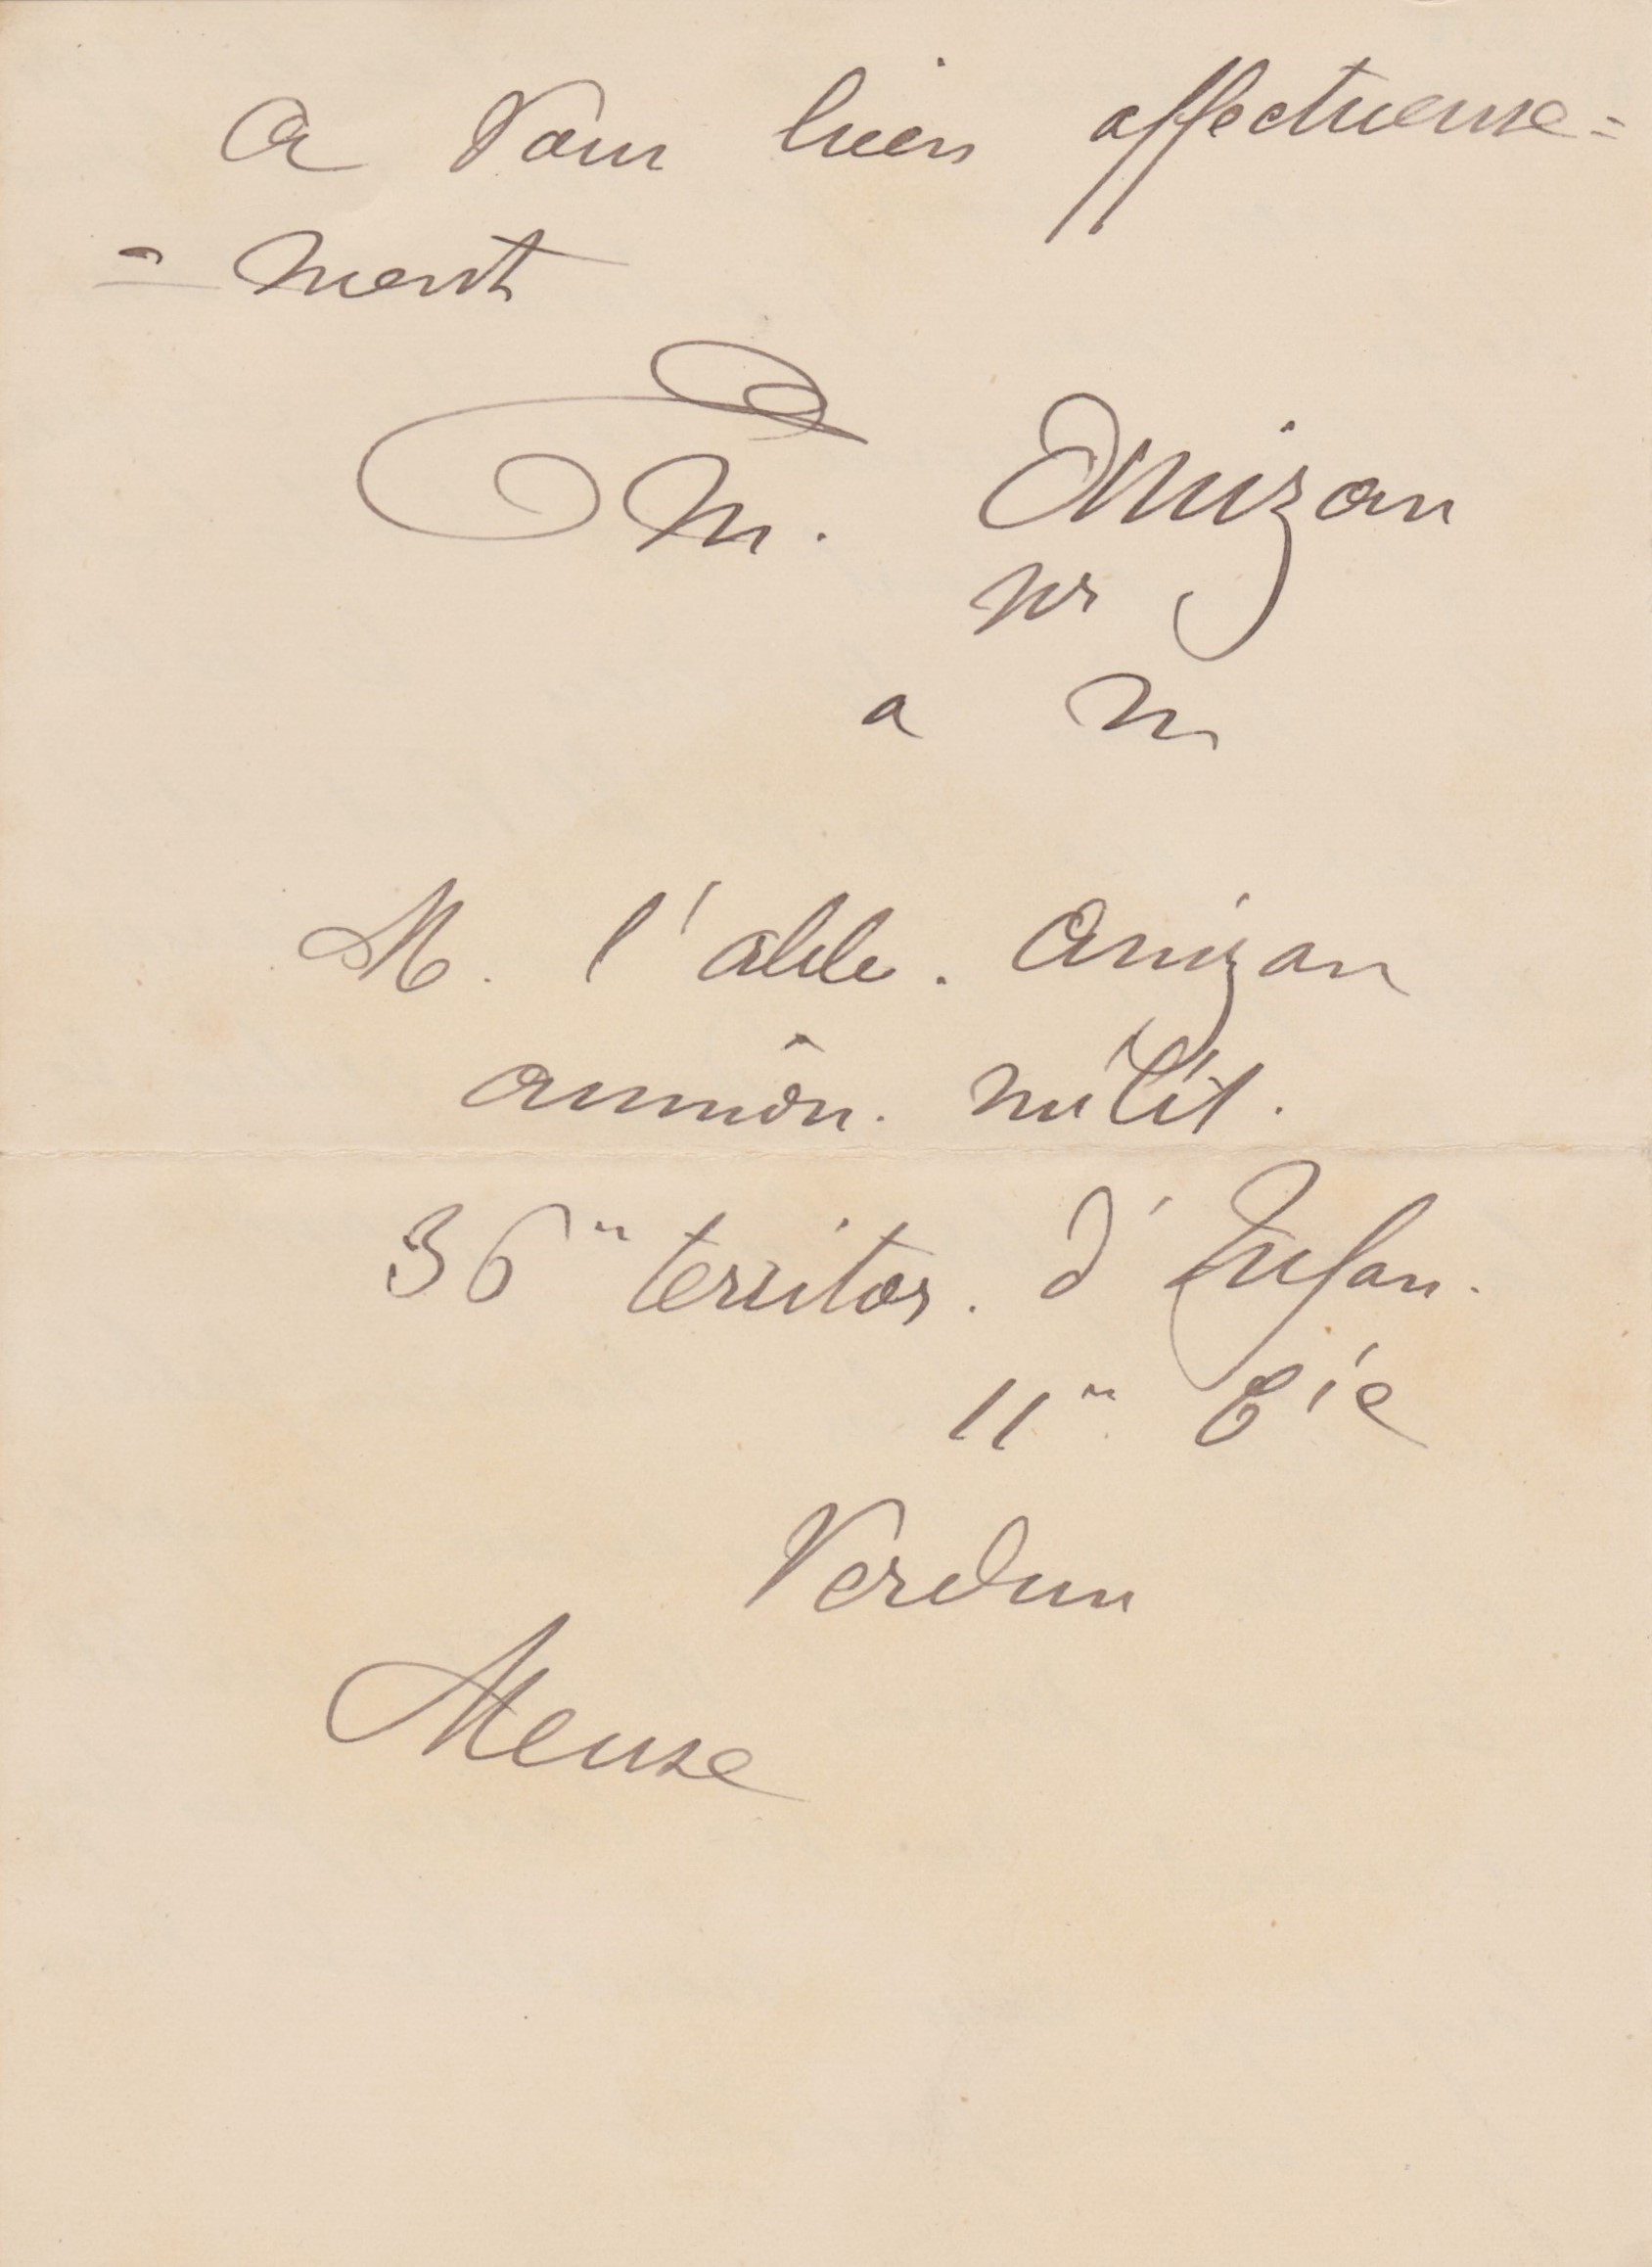 A vous bien affectueuse=
=ment
Em. Anizan
pr
a m
M. l'abbe. Anizan
aumôn. milit.
36e territor. d'Infan.
11e Cie
Verdun
Meuse